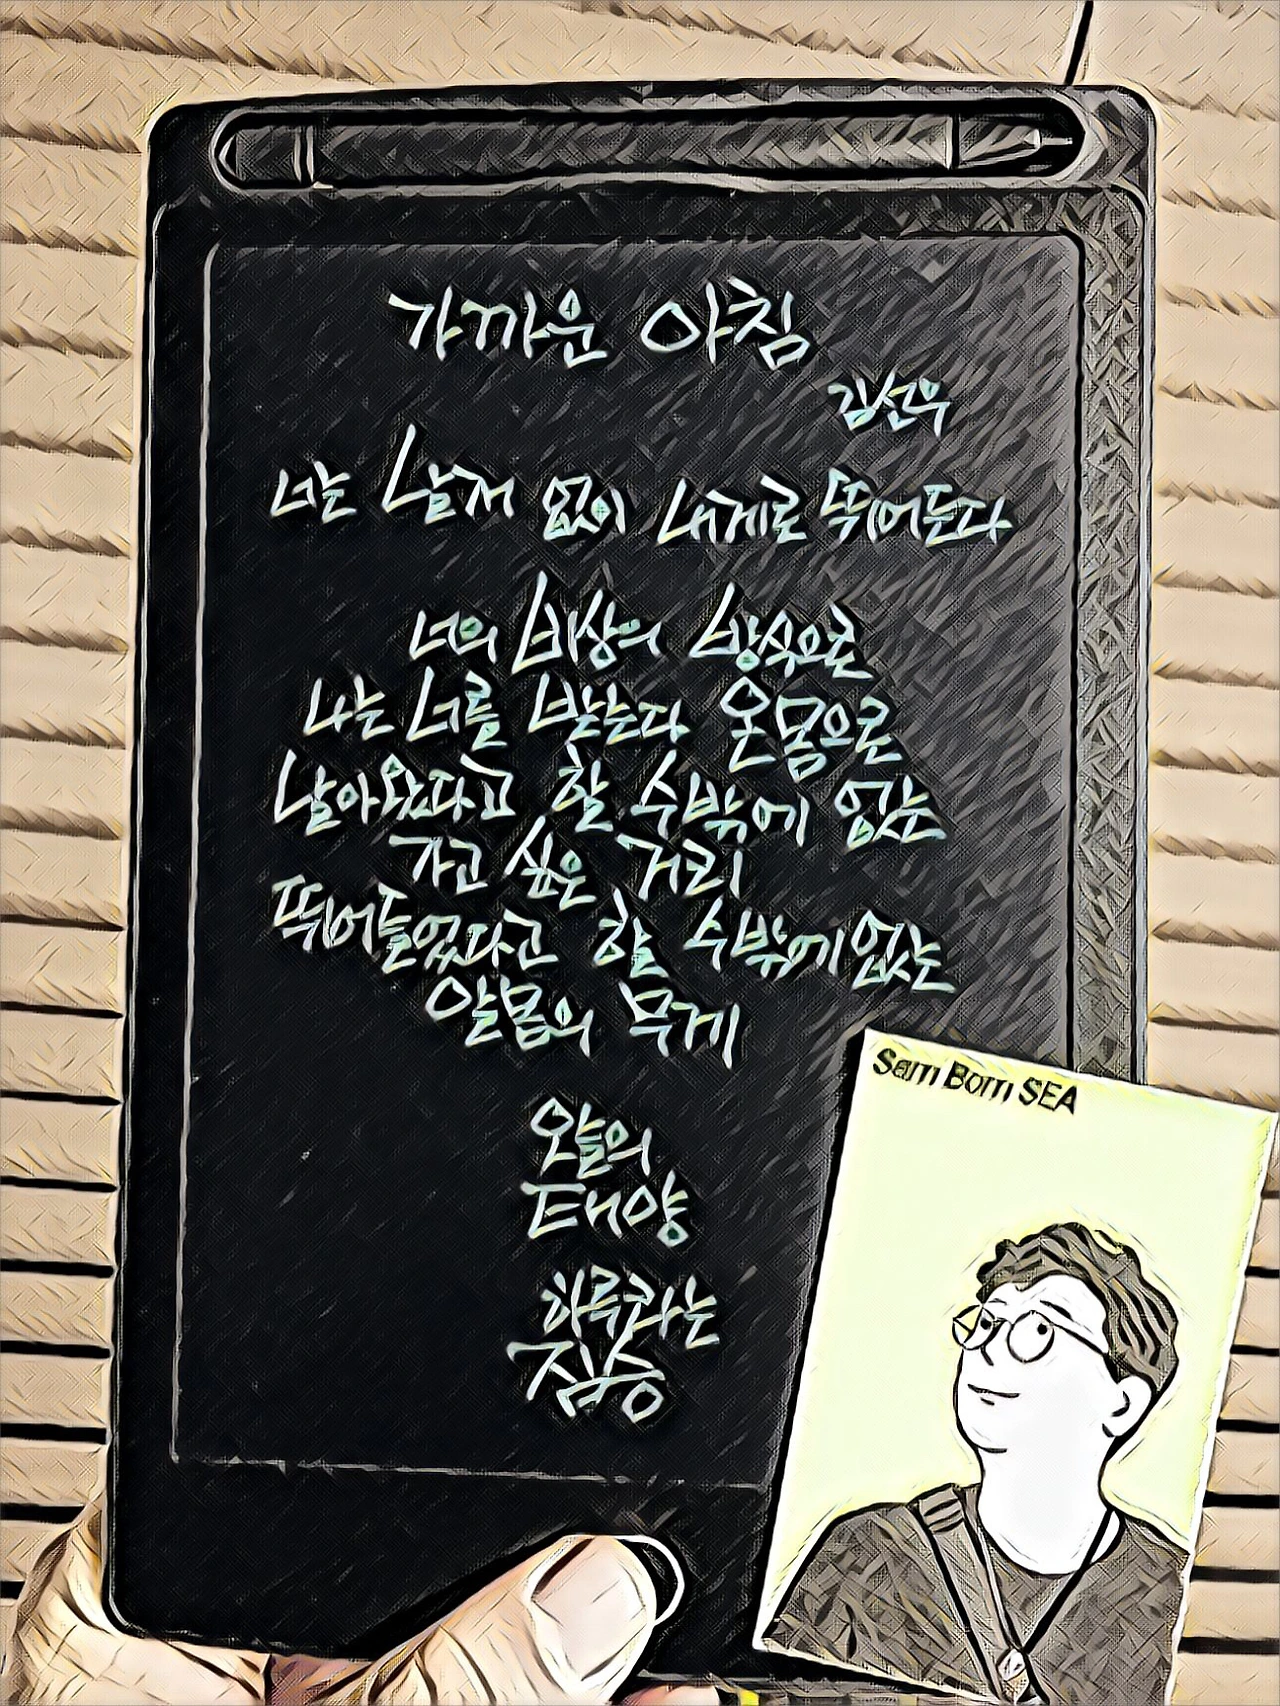 가까운 아침
김선우
너는 날개 없이 내게로 뛰어든다
너의 비상의 방식으로
나는 너를 받는다 온몸으로
날아왔다고 할 수밖에 없는
가고 싶은 거리
뛰어들었다고 할 수밖에 없는
알몸의 무게
오늘의
태양
하루라는
짐승
Sam Bom SEA